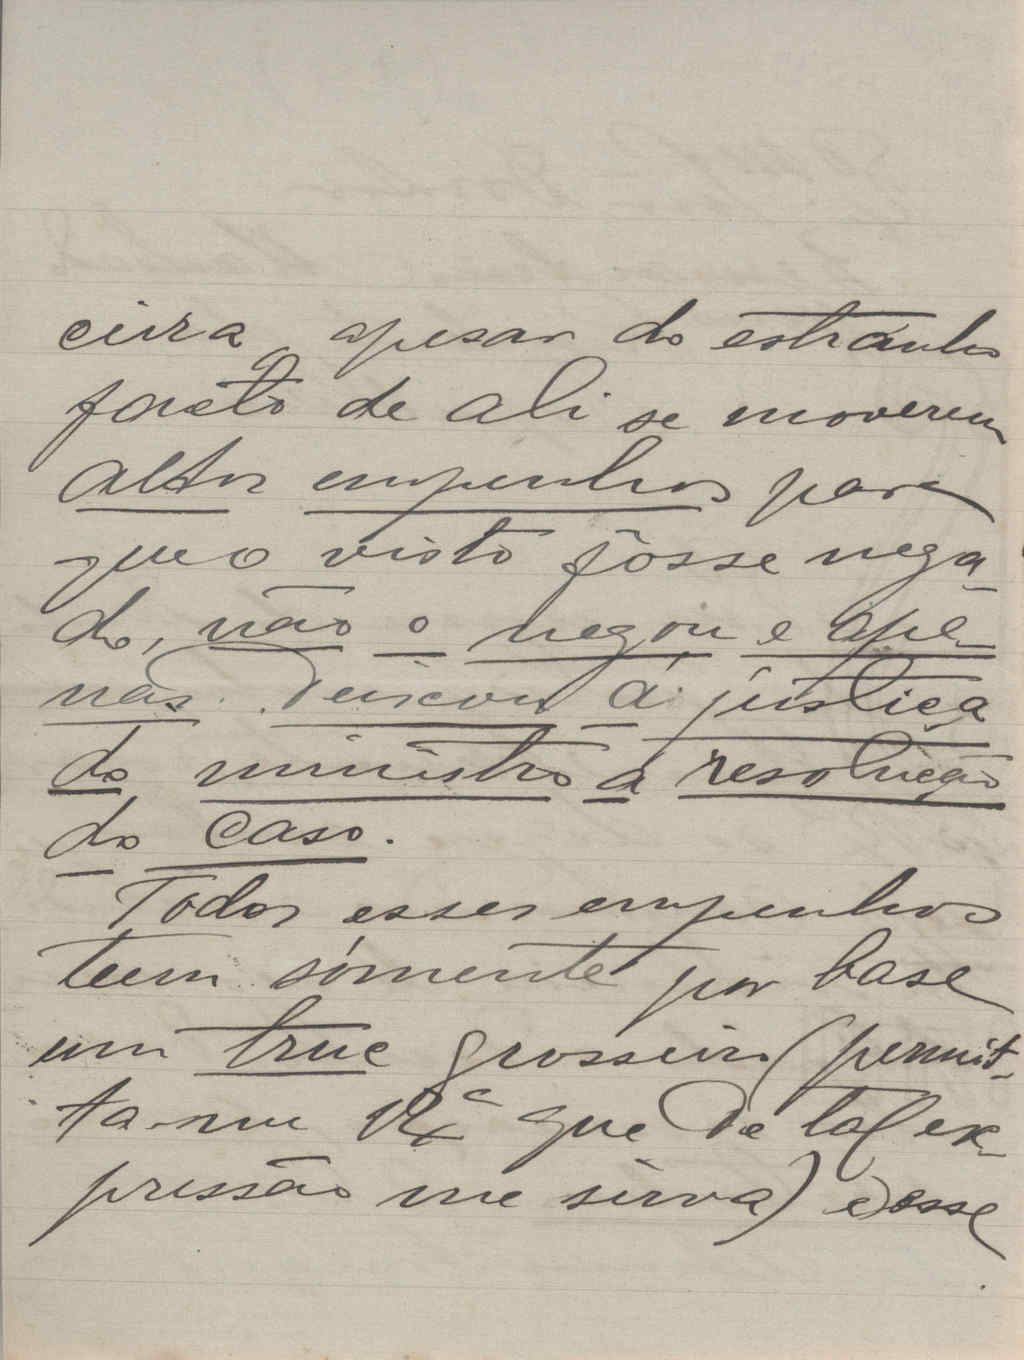 ceira, apesar do estranho
facto de ali se moverem
altos empenhos para
que o visto fôsse nega-
do, não o negou e ape-
nas deixou á justiça
do ministro a resolução
do caso.
Todos esses empenhos
teem sómente por base
um truc grosseiro (permit-
ta-me V. Exª que de tal ex-
pressão me sirva) e esse